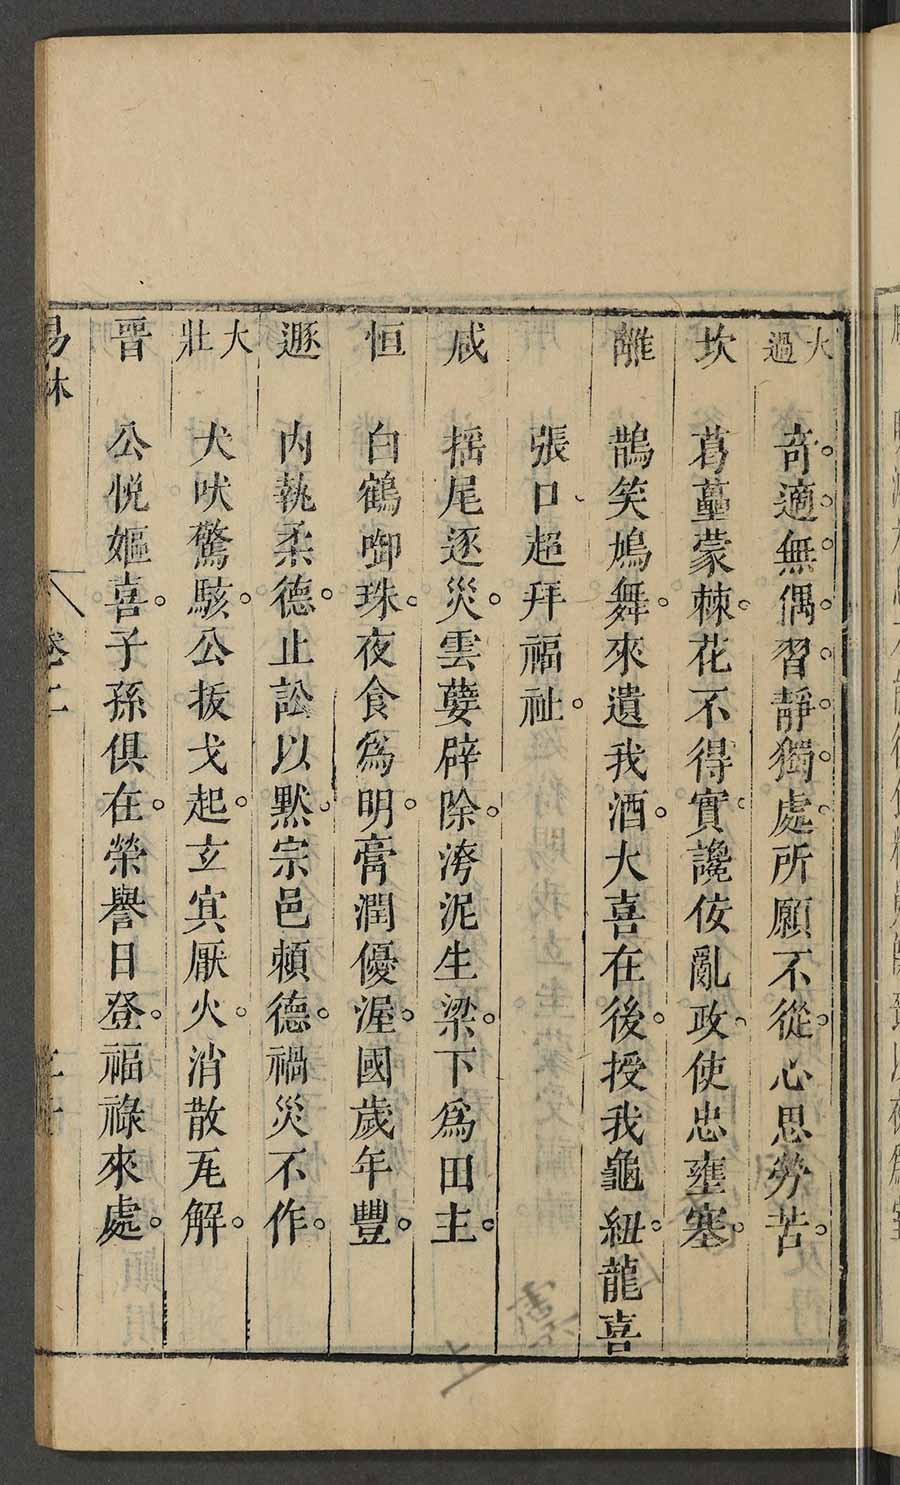 大過 奇適無偶。習靜獨處。所願不從。心思勞苦。
坎 葛藟蒙棘。花不得實。讒佞亂政。使忠壅塞。
離 鵲笑鳩舞。來遺我酒。大喜在後。授我龜紐。龍喜
張口、超拜福祉。
咸 搖尾逐災。雲孽辟除。洿泥生梁。下為田主。
恒 白鶴啣珠。夜食為明。膏潤優渥。國歲年豐。
遯 內執柔德。止訟以默。宗邑賴德。禍災不作。
大壯 犬吠驚駭。公拔戈起。玄冥厭火。消散瓦解。
晉 公悅嫗喜。子孫俱在。榮譽日登。福祿來處。
易林 卷二